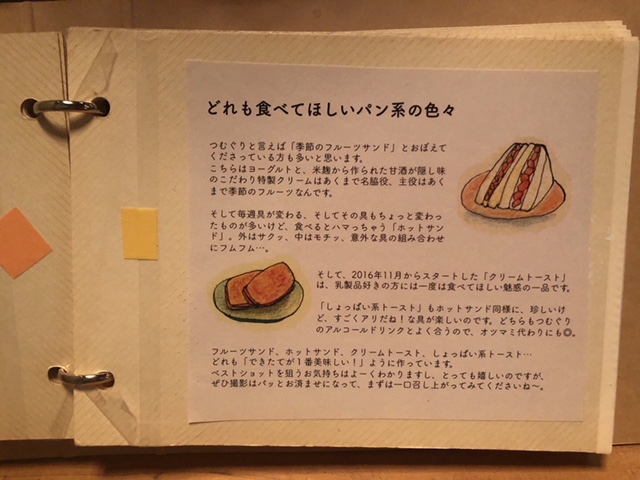 どれも食べてほしいパン系の色々
つむぐりと言えば「季節のフルーツサンド」とおぼえて
くださっている方も多いと思います。
こちらはヨーグルトと、米麹から作られた甘酒が隠し味
のこだわり特製クリームはあくまで名脇役、主役はあく
まで季節のフルーツなんです。
そして毎週具が変わる、そしてその具もちょっと変わっ
たものが多いけど、食べるとハマっちゃう「ホットサン
ド」。外はサクッ、中はモチッ、意外な具の組み合わせ
にフムフム…。
そして、2016年11月からスタートした「クリームトースト」
は、乳製品好きの方には一度は食べてほしい魅惑の一品です。
「しょっぱい系トースト」もホットサンド同様に、珍しいけ
ど、すごくアリだね！な具が楽しいのです。どちらもつむぐり
のアルコールドリンクとよく合うので、オツマミ代わりにも◎。
フルーツサンド、ホットサンド、クリームトースト、しょっぱい系トースト…
どれも「できたてが１番美味しい！」ように作っています。
ベストショットを狙うお気持ちはよーくわかりますし、とっても嬉しいのですが、
ぜひ撮影はパッとお済ませになって、まずは一口召し上がってみてくださいね〜。